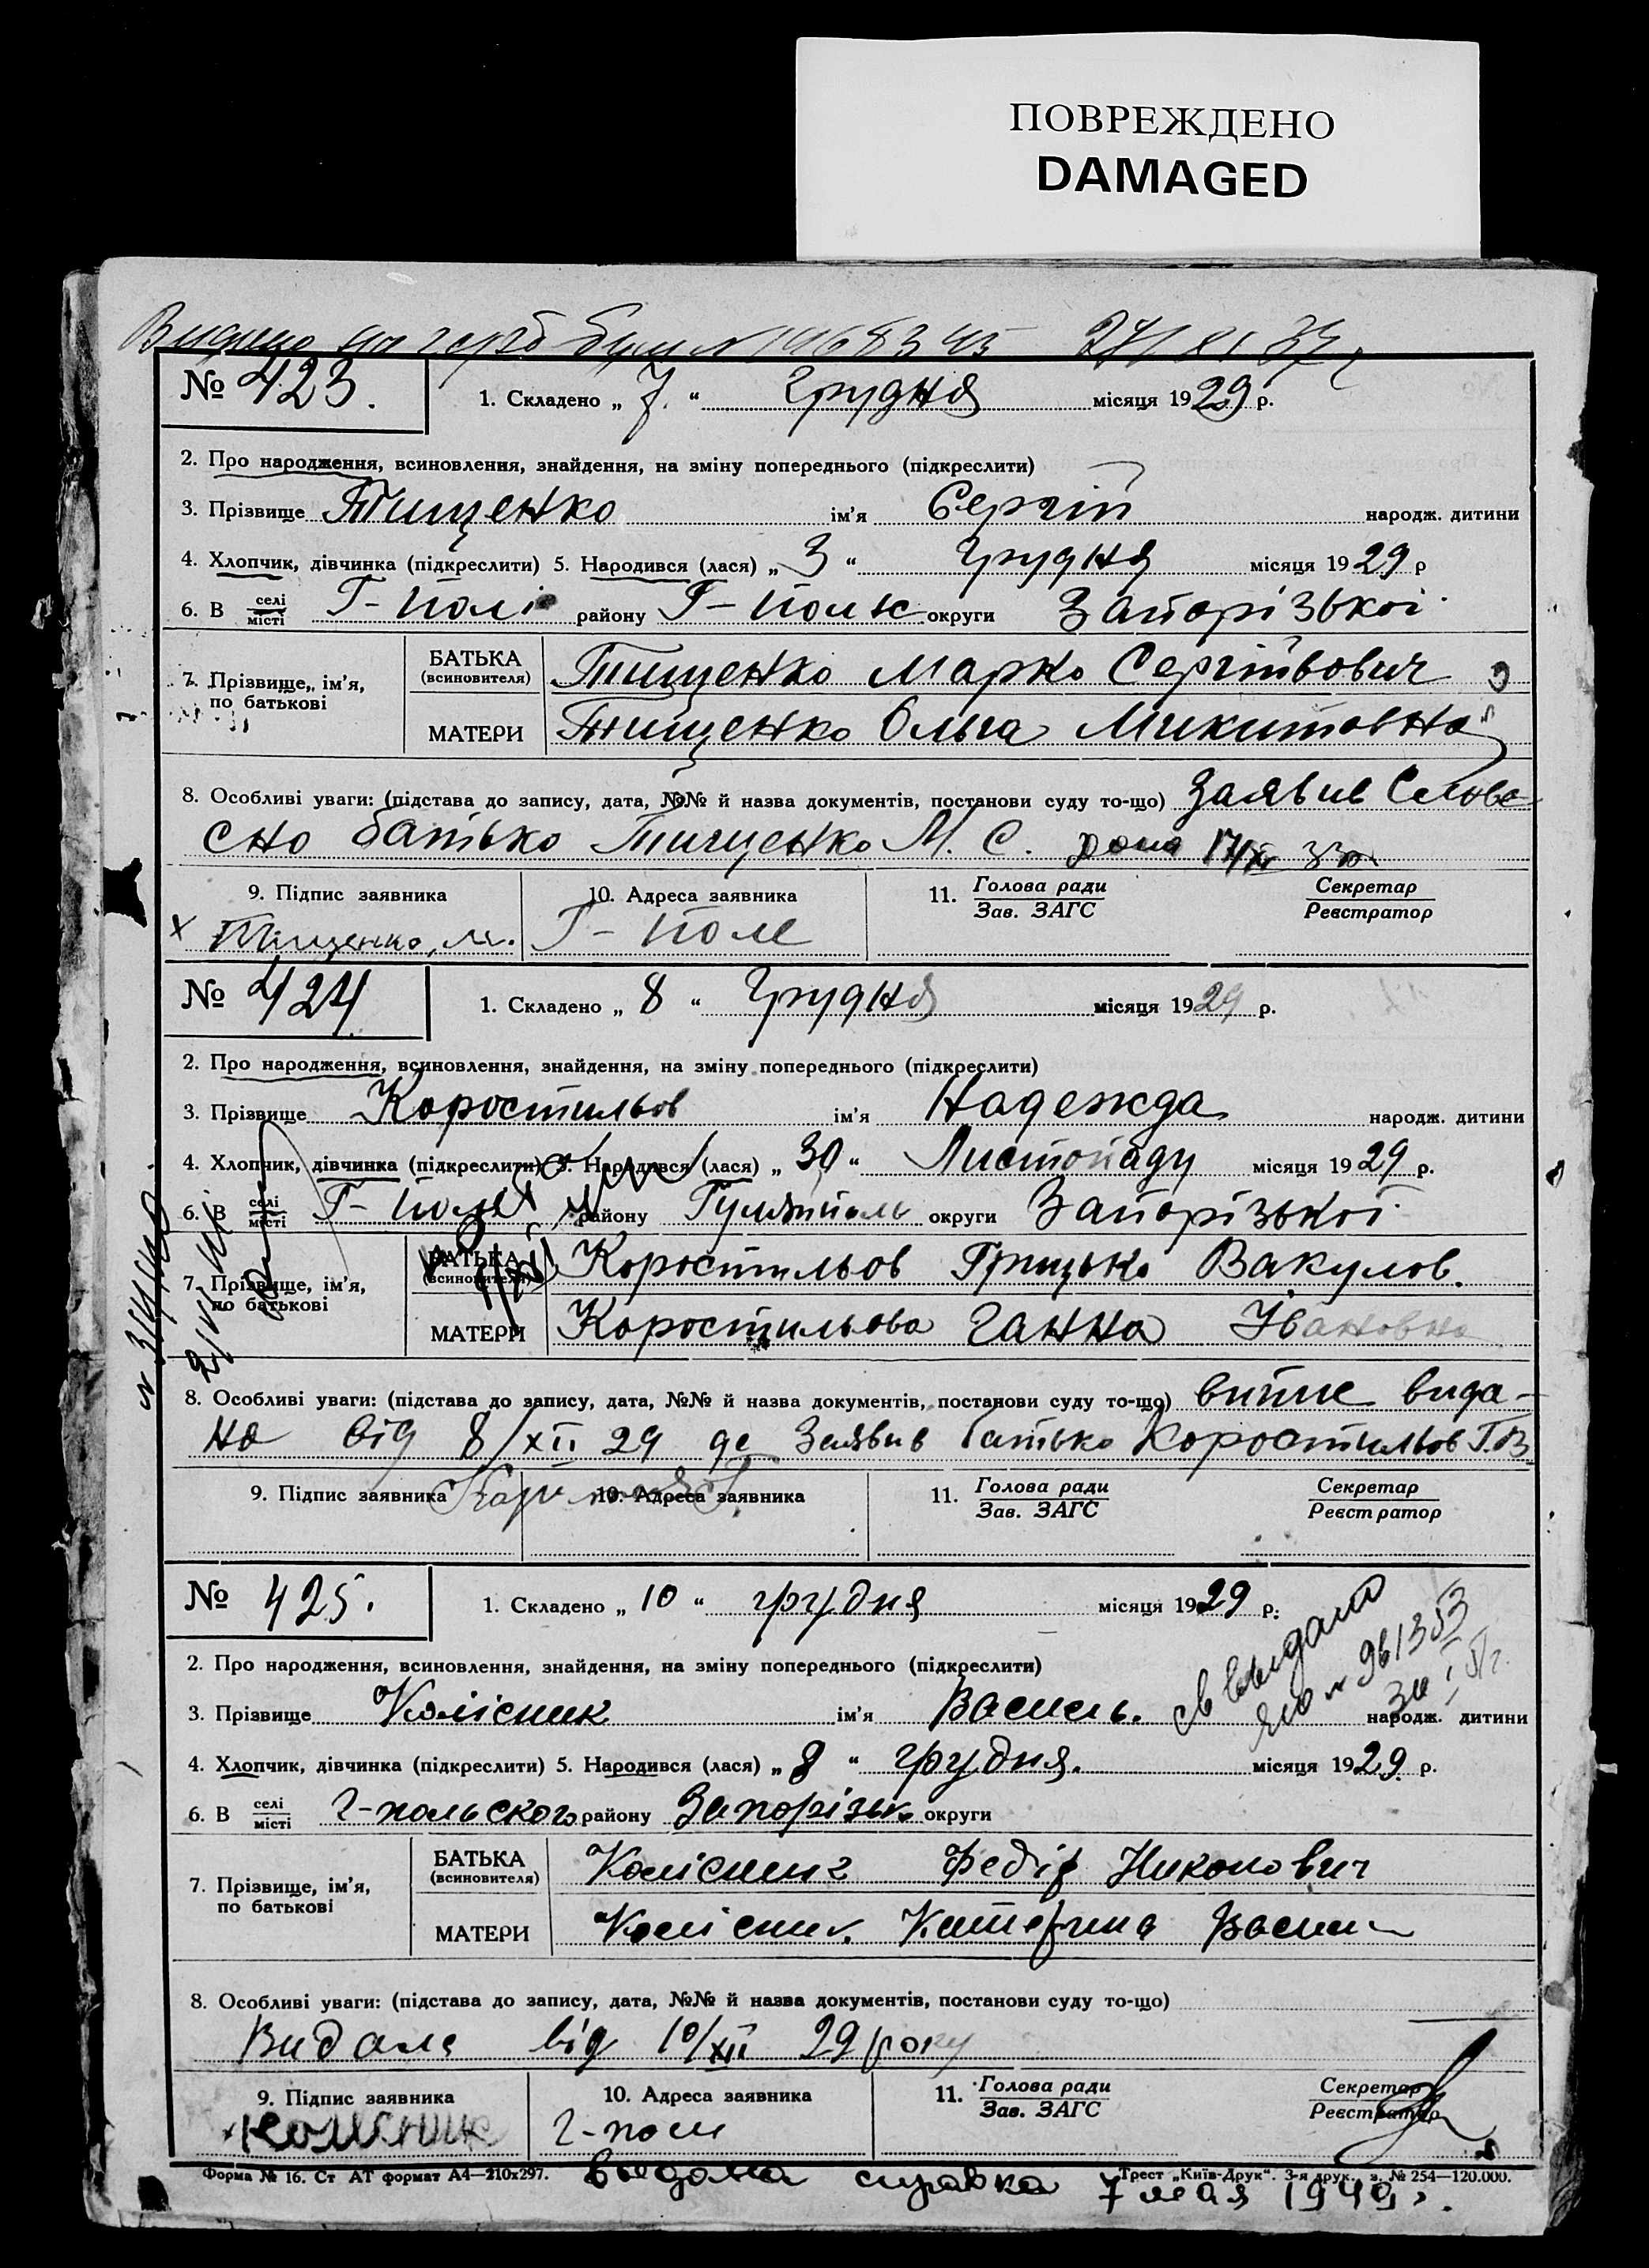 ПОВРЕЖДЕНО
DAMAGED
на герб бум N 27/XI 37
№ 423. 1. Складено „ 7. “ Грудня місяця 1929 р.
2. Про народження, всиновлення, знайдення, на зміну попереднього (підкреслити)
3. Прізвище Тищенко ім’я Сергій народж. дитини
4. Хлопчик, дівчинка (підкреслити) 5. Народився (лася) „ 3 “ Грудня місяця 1929 р
6. В селі місті Г-Полі району Г-Польс округи Запорізької
7. Прізвище, ім’я, по батькові
БАТЬКА (всиновителя) Тищенко Марко Сергійвович
МАТЕРИ Тищенко Ольга Микитовна
8. Особливі уваги: (підстава до запису, дата, №№ й назва документів, постанови суду то-що) Заявив Слове
сно батько Тищенко М. С.
9. Підпис заявника 10. Адреса заявника 11. Голова ради Зав. ЗАГС Секретар Реєстратор
х Тищенко, м. Г-Поле
№ 424 1. Складено „ 8 “ Грудня місяця 1929 р.
2. Про народження, всиновлення, знайдення, на зміну попереднього (підкреслити)
3. Прізвище Коростильов ім’я Надежда народж. дитини
4. Хлопчик, дівчинка (підкреслити) 5. Народився (лася) „ 30 “ Листопаду місяця 1929 р.
6. В селі місті Г-Поля району Гуляйполь округи Запорізької
7. Прізвище, ім’я, по батькові
БАТЬКА (всиновителя) Коростильов Грицько Вакулов.
МАТЕРИ Коростильова Ганна Івановна
8. Особливі уваги: (підстава до запису, дата, №№ й назва документів, постанови суду то-що) витяг вида-
но від 8/XII 29 де Заявив батько Коростильов Г.В.
9. Підпис заявника 10. Адреса заявника 11. Голова ради Зав. ЗАГС Секретар Реєстратор
№ 425. 1. Складено „ 10 “ грудня місяця 1929 р.
св выдано
ЯЮ N 961353
2. Про народження, всиновлення, знайдення, на зміну попереднього (підкреслити)
3. Прізвище Колісник ім’я Василь. народж. дитини
4. Хлопчик, дівчинка (підкреслити) 5. Народився (лася) „ 8 “ грудня. місяця 1929. р.
6. В селі місті Г-польского району Запорізьк. округи
7. Прізвище, ім’я, по батькові
БАТЬКА (всиновителя) Колісник Федір Николович
МАТЕРИ Колісник. Катерина Васил
8. Особливі уваги: (підстава до запису, дата, №№ й назва документів, постанови суду то-що)
Видана від 10/XII 29 року
9. Підпис заявника 10. Адреса заявника 11. Голова ради Зав. ЗАГС Секретар Реєстратор
Колісник Г-поли
Форма № 16. Ст АТ формат А4—210х297. Трест „Київ-Друк“. 3-я друк. з. № 254—120.000.
выдана справка 7 мая 1949 г.